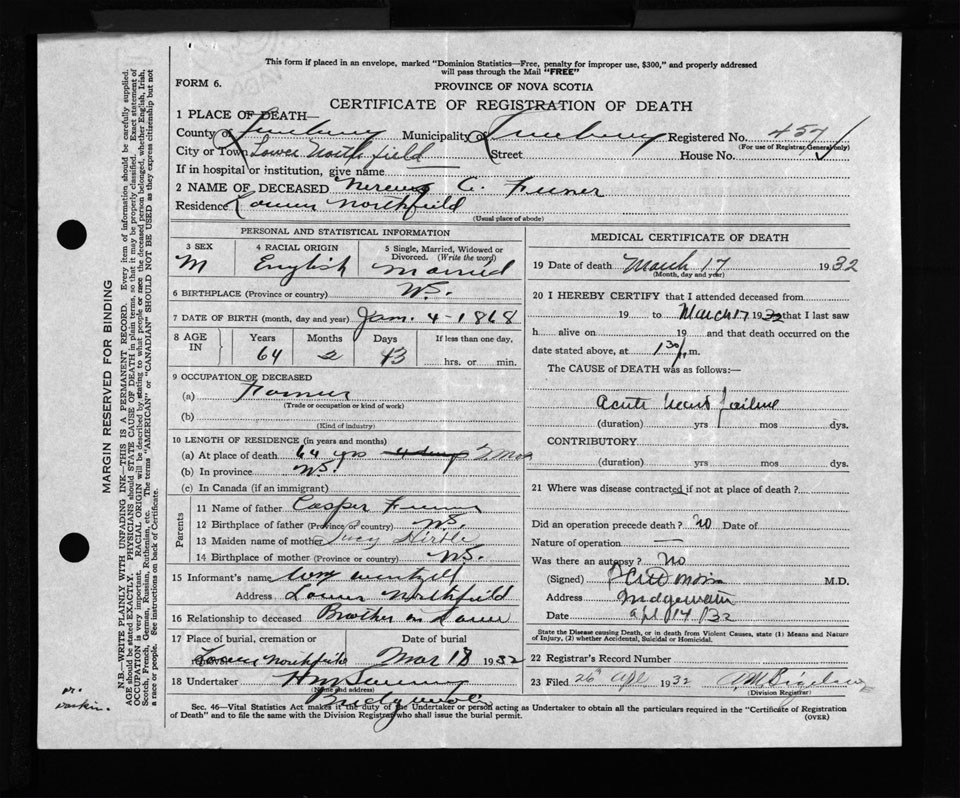 This form if placed in an envelope, marked "Dominion Statistics—Free, penalty for improper use, $300," and properly addressed
will pass through the Mail "FREE"
FORM 6.
PROVINCE OF NOVA SCOTIA
CERTIFICATE OF REGISTRATION OF DEATH
1 PLACE OF DEATH—
County of Lunenburg Municipality of Lunenburg Registered No. 457
(For use of Registrar General only)
City or Town Lower Northfield Street House No.
If in hospital or institution, give name
2 NAME OF DECEASED C.
Residence Lower Northfield
(Usual place of abode)
PERSONAL AND STATISTICAL INFORMATION
3 SEX 4 RACIAL ORIGIN 5 Single, Married, Widowed or Divorced. (Write the word)
M English Married
6 BIRTHPLACE (Province or country) N.S.
7 DATE OF BIRTH (month, day and year) Jan. 4 - 1868
8 AGE IN Years Months Days If less than one day,
64 2 13 hrs. or min.
9 OCCUPATION OF DECEASED
(a) Farmer
(Trade or occupation or kind of work)
(b)
(Kind of industry)
10 LENGTH OF RESIDENCE (in years and months)
(a) At place of death 64 yrs 2 Mos
(b) In province N.S.
(c) In Canada (if an immigrant)
Parents
11 Name of father Casper
12 Birthplace of father (Province or country) N.S.
13 Maiden name of mother Lucy Hirtle
14 Birthplace of mother (Province or country) N.S.
15 Informant's name Wm Wentzell
Address Lower Northfield
16 Relationship to deceased Brother in Law
17 Place of burial, cremation or Date of burial
Lower Northfield Mar 18 1932
18 Undertaker
(Name and address)
MEDICAL CERTIFICATE OF DEATH
19 Date of death March 17 1932
(Month, day and year)
20 I HEREBY CERTIFY that I attended deceased from
19 to March 17 1932 that I last saw
h alive on 19 and that death occurred on
date stated above, at 1.30 p.m.
The CAUSE of DEATH was as follows:—
Acute heart failure
(duration) yrs mos dys.
CONTRIBUTORY
(duration) yrs mos dys.
21 Where was disease contracted if not at place of death?
Did an operation precede death? No Date of
Nature of operation —
Was there an autopsy? No
(Signed) M.D.
Address Bridgewater
Date Apl 14 / 32
State the Disease causing Death, or in death from Violent Causes, state (1) Means and Nature
of Injury, (2) whether Accidental, Suicidal or Homicidal.
22 Registrar's Record Number
23 Filed 26 Apl 1932
(Division Registrar)
Sec. 46—Vital Statistics Act makes it the duty of the Undertaker or person acting as Undertaker to obtain all the particulars required in the "Certificate of Registration
of Death" and to file the same with the Division Registrar who shall issue the burial permit.
(OVER)
MARGIN RESERVED FOR BINDING
N.B.—WRITE PLAINLY WITH UNFADING INK—THIS IS A PERMANENT RECORD. Every item of information should be carefully supplied.
AGE should be stated EXACTLY. PHYSICIANS should STATE CAUSE OF DEATH in plain terms, so that it may be properly classified. Exact statement of
OCCUPATION is very important. RACIAL ORIGIN will be described by stating to what people or race the deceased person belonged, whether English, Irish,
Scotch, French, German, Russian, Ruthenian, etc. The terms "AMERICAN" or "CANADIAN" SHOULD NOT BE USED as they express citizenship but not
a race or people. See instructions on back of Certificate.